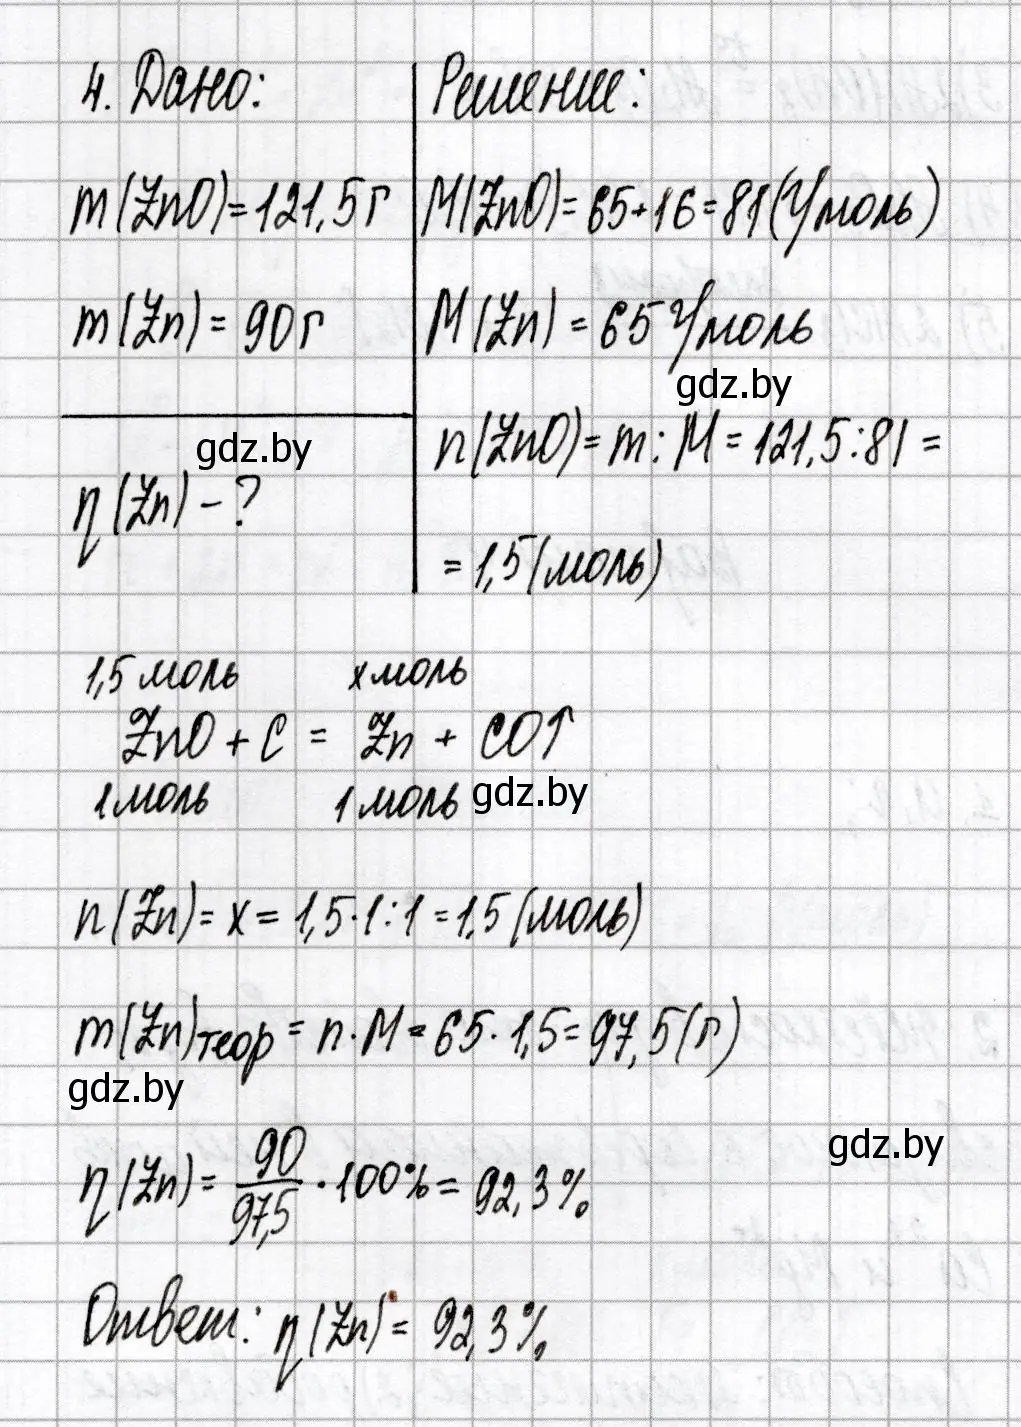 4. Дано:
m(ZnO)=121,5г
m(Zn)=90г
gdz.by
η(Zn)-?
Решение:
M(ZnO)=65+16=81(г/моль)
M(Zn)=65 г/моль
gdz.by
n(ZnO)=m:M=121,5:81=
=1,5(моль)
1,5 моль x моль
ZnO+C = Zn + CO↑
1 моль 1 моль gdz.by
n(Zn)=x=1,5·1:1=1,5(моль)
m(Zn)теор=n·M=65·1,5=97,5(г)
gdz.by
gdz.by
η(Zn)=90/97,5·100%=92,3%
Ответ: η(Zn)=92,3%